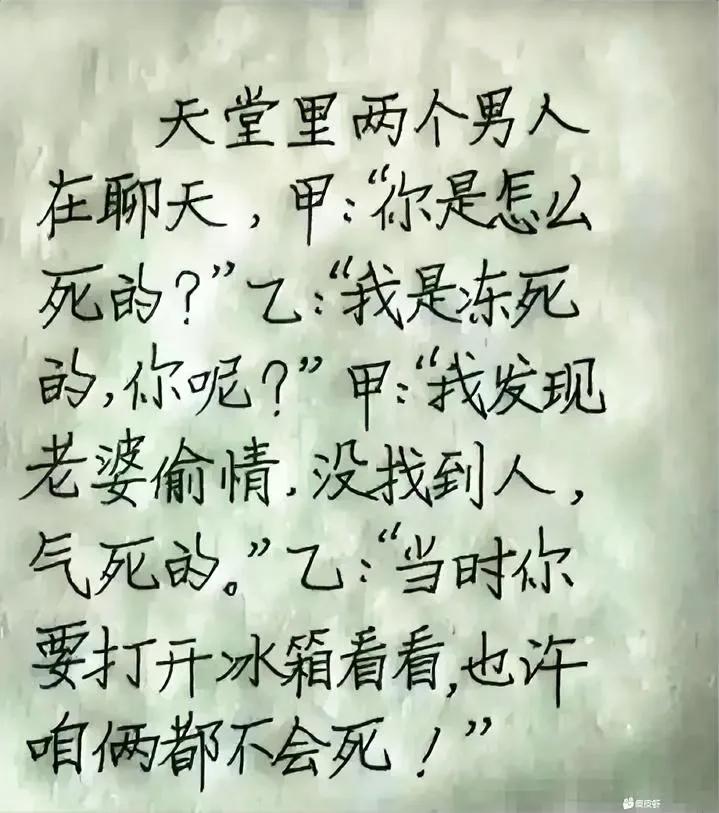 天堂里两个男人
在聊天，甲:“你是怎么
死的？”乙:“我是冻死
的,你呢？”甲:“我发现
老婆偷情.没找到人,
气死的。”乙:“当时你
要打开冰箱看看,也许
咱俩都不会死！”
皮皮虾